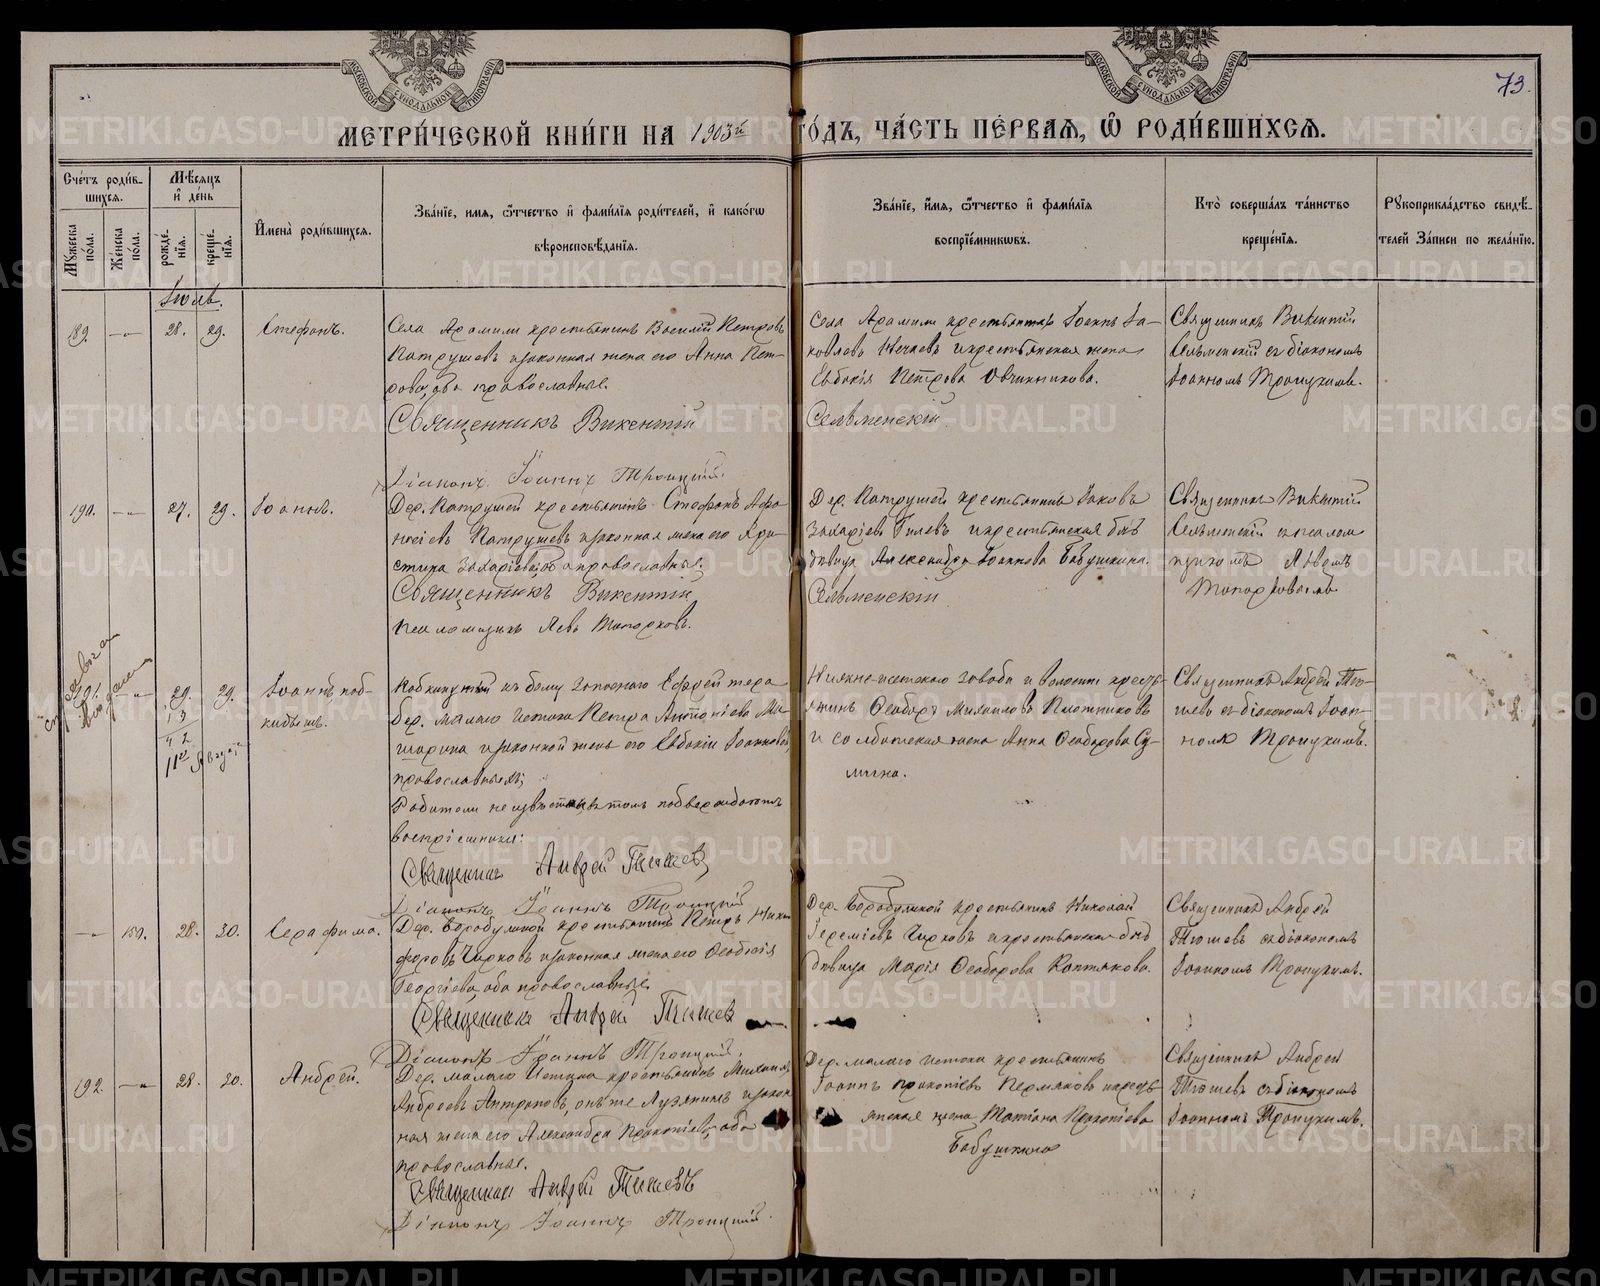 МОСКОВСКОЙ СѴНОДАЛЬНОЙ ТИПОГРАФІИ
МОСКОВСКОЙ СѴНОДАЛЬНОЙ ТИПОГРАФІИ
73.
МЕТРИ́ЧЕСКОЙ КНИ́ГИ НА 1903й ГО́ДЪ, ЧА́СТЬ ПЕ́РВАЯ, Ѽ РОДИ́ВШИХСЯ.
Сче́тъ роди́в-
шихся.
Мѣ́сяцъ
и҆ де́нь
Мꙋ́жеска
по́ла.
Же́нска
по́ла.
рожде́-
нїя.
креще́-
нїя.
И҆мена̀ роди́вшихся.
Зва́нїе, имя, ѻ҆́тчество и҆ фами́лїя роди́телей, и҆ како́гѡ
вѣроисповѣ́данїя.
Зва́нїе, и҆́мя, ѻ҆́тчество и҆ фами́лїя
воспрїе́мникѡвъ.
Кто̀ соверша́лъ та́инство
креще́нїя.
Рꙋкоприкла́дство свидѣ́-
телей За́писи по жела́нїю.
Іюль.
189.
28.
29.
Стефанъ.
Села Арамили крестьянинъ Василій Петровъ
Патрушевъ и законная жена его Анна Пет-
рова, оба православные.
Священникъ Викентій
Діаконъ Іоаннъ Троицкій.
Села Арамили крестьянинъ Іоаннъ Іа-
ковлевъ Нечаевъ и крестьянская жена
Евдокія Петрова Овчинникова.
Сельменскій
Священникъ Викентій
Сельменскій съ діакономъ
Іоанномъ Троицкимъ.
190.
27.
29.
Іоаннъ.
Дер. Патрушей крестьянинъ Стефанъ Афа-
насіевъ Патрушевъ и законная жена его Хри-
стина Захаріева, оба православные.
Священникъ Викентій
Псаломщикъ Левъ Топорковъ.
Дер. Патрушей крестьянинъ Іаковъ
Захаріевъ Гилевъ и крестьянская
дѣвица Александра Іоаннова Бабушкина.
Сельменскій
Священникъ Викентій
Сельменскій съ псалом-
щикомъ Львомъ
Топорковымъ
191.
29.
29.
Іоаннъ под-
кидышъ.
11го Августа
Подкинутый къ дому запаснаго Ефрейтера
дер. Малаго Истока Петра Антоніева Ма-
шарина и законной жены его Евдокіи Іоанновой,
православныхъ;
Родители неизвѣстны, въ томъ подтверждаютъ
воспріемники:
Священникъ Андрей Тюшевъ
Діаконъ Іоаннъ Троицкій
Нижне-Исетскаго завода и волости кресть-
янинъ Ѳеодоръ Михаиловъ Плотниковъ
и солдатская жена Анна Ѳеодорова Су-
Священникъ Андрей Тю-
шевъ съ діакономъ Іоан-
номъ Троицкимъ.
159.
28.
30.
Серафима.
Дер. Бородулиной крестьянинъ Петръ Ники-
форовъ Чирковъ и законная жена его Ѳеодосія
Георгіева, оба православные.
Священникъ Андрей Тюшевъ
Діаконъ Іоаннъ Троицкій.
Дер. Бородулиной крестьянинъ Николай
Іереміевъ Чирковъ и крестьянская
дѣвица Марія Ѳеодорова Коптякова.
Священникъ Андрей
Тюшевъ съ діакономъ
Іоанномъ Троицкимъ.
192.
28.
30.
Андрей.
Дер. Малаго Истока крестьянинъ Михаилъ
Андреевъ Антроповъ, онъ же Лузянинъ и закон-
ная жена его Александра Прокопіева, оба
православные.
Священникъ Андрей Тюшевъ
Діаконъ Іоаннъ Троицкій.
Дер. Малаго Истока крестьянинъ
Іоаннъ Прокопіевъ Пермяковъ и кресть-
янская жена Татіана Прокопіева
Бабушкина
Священникъ Андрей
Тюшевъ съ діакономъ
Іоанномъ Троицкимъ.
METRIKI.GASO-URAL.RU